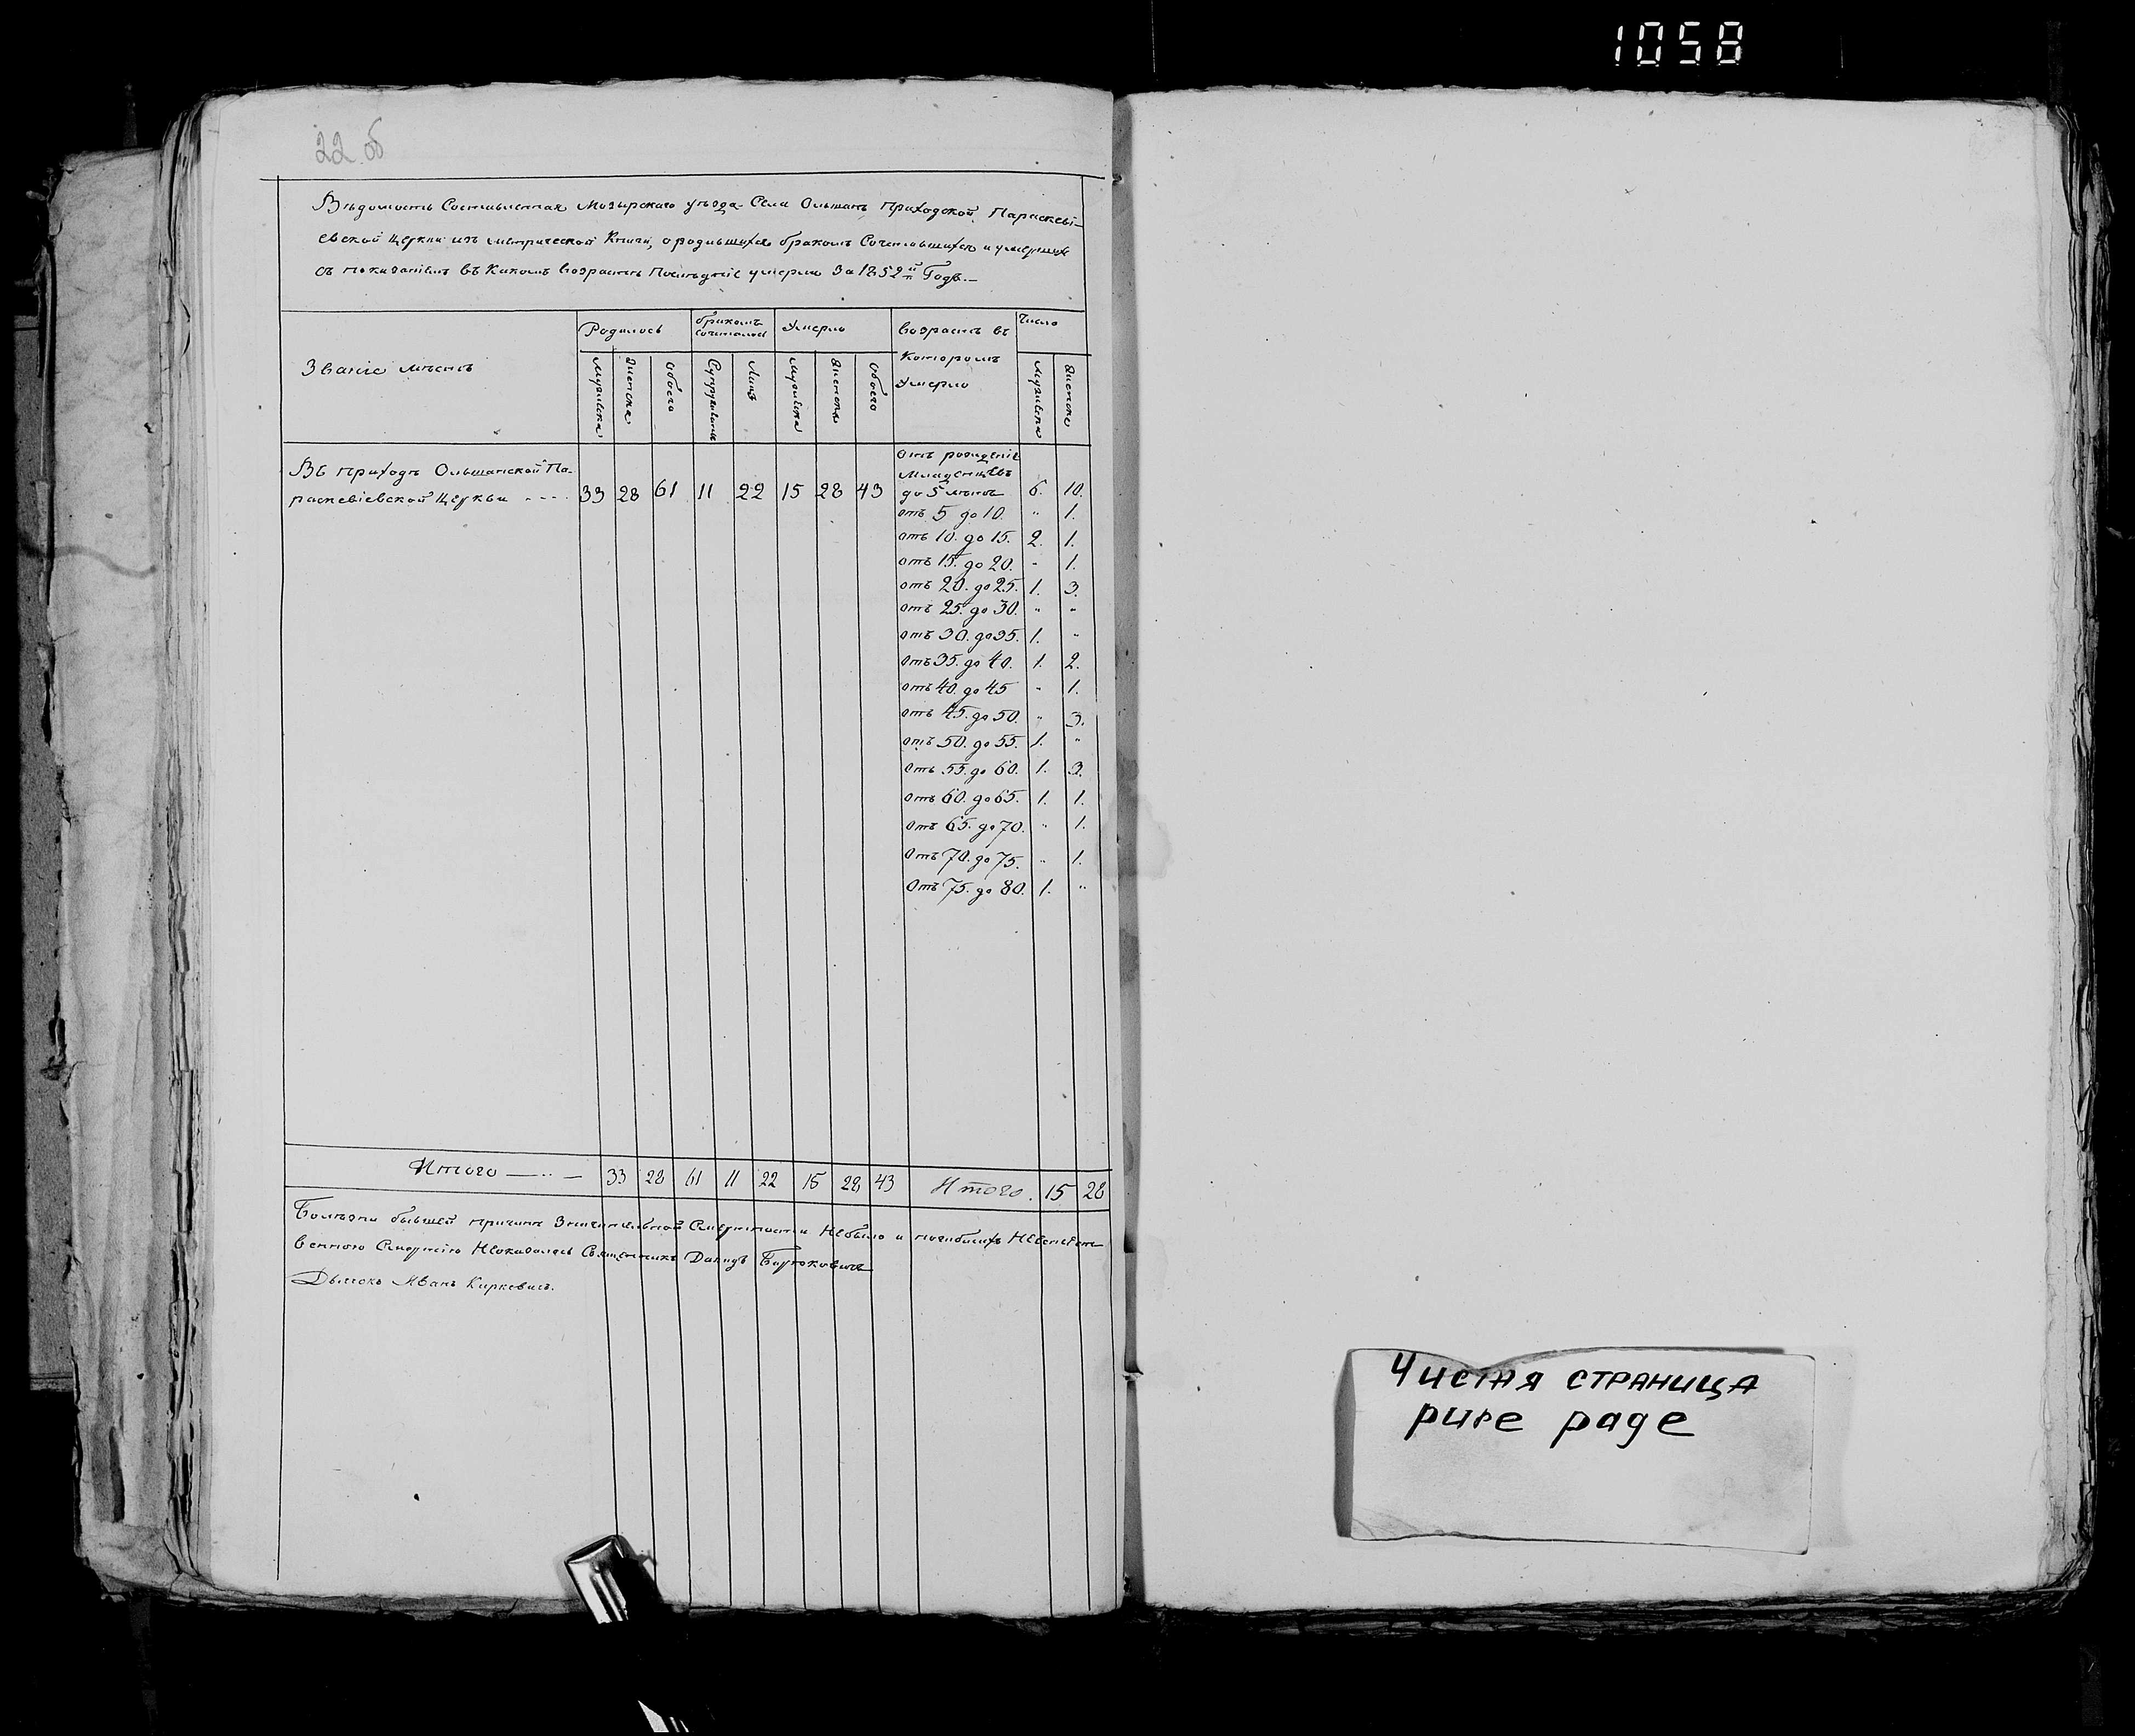 1058
22 об
Вѣдомость Составленная Мозырскаго уѣзда Села Ольшанъ Приходской Параскеві-
евской Церкви изъ метрической Книги, о родившихся бракомъ Сочетавшихся и умершихъ
съ показаніемъ въ Какомъ возрастѣ Послѣдніе умерли За 1852й Годъ.—
Званіе мѣстъ
Родилось
бракомъ сочеталось
Умерло
Возрастъ въ Которомъ Умерло
Число
Мужеска Женска Обоего Супружествъ Лицъ Мужеска Женска Обоего Мужеска Женска
Въ приходѣ Ольшанской Па-
раскевіевской Церкви - - - - 33 28 61 11 22 15 28 43
отъ рожденія
Младенцевъ
до 5 лѣтъ 6. 10.
отъ 5 до 10. " 1.
отъ 10. до 15. 2. 1.
отъ 15. до 20. " 1.
отъ 20. до 25. 1. 3.
отъ 25. до 30. " "
отъ 30. до 35. 1. "
отъ 35. до 40. 1. 2.
отъ 40. до 45 " 1.
отъ 45. до 50. " 3.
отъ 50. до 55. 1. "
отъ 55. до 60. 1. 3.
отъ 60. до 65. 1. 1.
отъ 65. до 70. " 1.
Отъ 70. до 75. " 1.
Отъ 75. до 80. 1. "
Итого 33 28 61 11 22 15 28 43 Итого. 15 28
Болѣзни бывшей причиною Значительной Смертности Небыло и погибшихъ Неестест-
венною Смертію Неоказалось Священникъ Давидъ
Дьячокъ Иванъ Киркевичъ.
Чистая страница
pure page